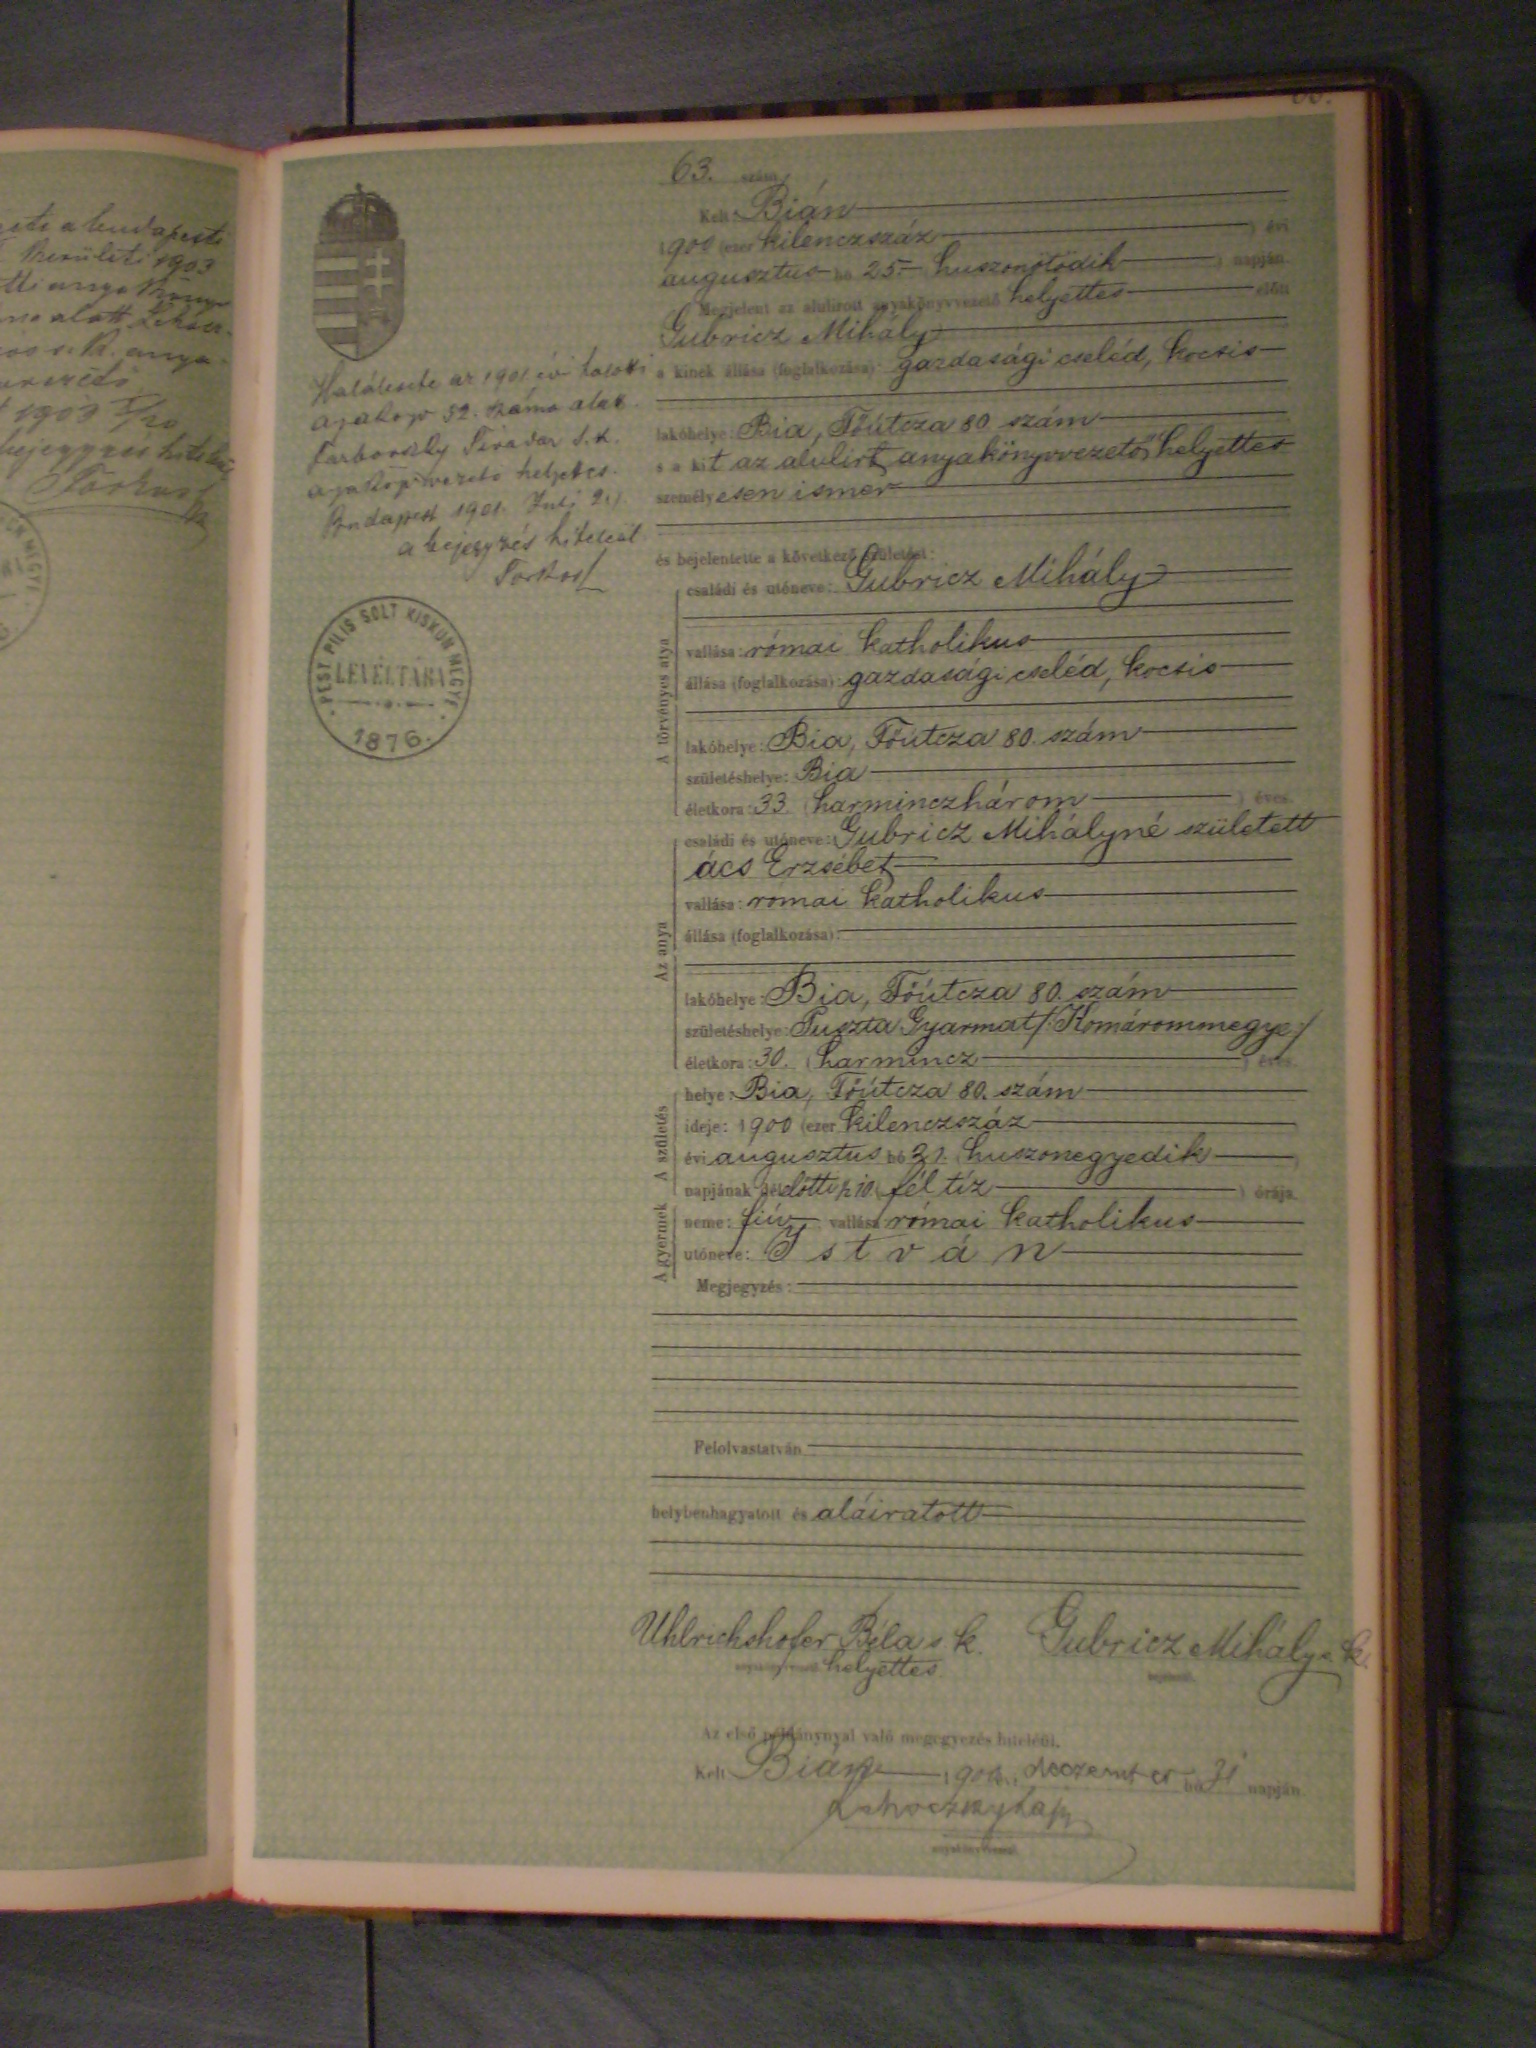 a budapesti
kerületi 1903
anyakönyv
alatt
anya-
1903
bejegyzés
63. szám
Kelt Bián
1900 (ezer kilenczszáz ) évi
augusztus hó 25. (huszonötödik ) napján.
Megjelent az alulirott anyakönyvvezető helyettes előtt
Gubricz Mihály
a kinek állása (foglalkozása): gazdasági cseléd, kocsis
lakóhelye: Bia, Főútcza 80 szám
s a kit az alulirt anyakönyvvezető helyettes
személyesen ismer
és bejelentette a következő születést:
A törvényes atya
családi és utóneve: Gubricz Mihály
vallása: római katholikus
állása (foglalkozása): gazdasági cseléd, kocsis
lakóhelye: Bia, Főútcza 80. szám
születéshelye: Bia
életkora: 33 (harminczhárom ) éves.
Az anya
családi és utóneve: Gubricz Mihályné született
ács Erzsébet
vallása: római katholikus
állása (foglalkozása):
lakóhelye: Bia, Főútcza 80. szám
születéshelye: Puszta Gyarmat /: Komárommegye :/
életkora: 30. (harmincz ) éves.
A születés
helye: Bia, Főútcza 80. szám
ideje: 1900 (ezer kilenczszáz
évi augusztus hó 21. (huszonegyedik )
napjának délelőtti ½ 10. (fél tíz ) órája.
A gyermek
neme: fiú vallása: római katholikus
utóneve: István
Megjegyzés:
Felolvastatván
helybenhagyatott és aláiratott
Uhlrichshofer Béla s. k. Gubricz Mihály s. k.
helyettes
Az első példánynyal való megegyezés hiteléül.
Kelt Bián 1900., deczember hó 31 napján.
anyakönyvvezető.
Halálesete az 1901 évi
52. száma alatt
Tivadar s.k.
helyettes.
Budapest 1901. Juli
a bejegyzés hiteléül
PEST PILIS SOLT KISKUN MEGYE
LEVÉLTÁRA
1876.